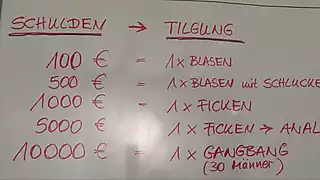 SCHULDEN → TILGUNG
100 € = 1x BLASEN
500 € = 1x BLASEN mit SCHLUCKE
1000 € = 1x FICKEN
5000 € = 1x FICKEN → ANAL
10000 € = 1x GANGBANG
(30 Männer)